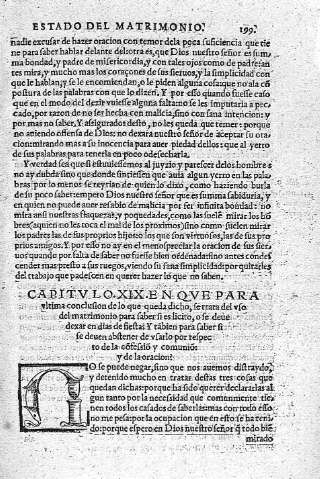 ESTADO DEL MATRIMONIO. 199.
nadie excusar de hazer oracion con temor dela poca suficiencia que tie
ne para saber hablar delante del: esto es, que Dios nuestro señor es sum
ma bondad, y padre de misericordia, y con tales ojos como de padre: an
tes mira, y mucho mas los coraçones de sus sieruos, y la simplicidad con
que le hablan, y se le encomiendan, o le piden alguna cosa: que no ala cõ
postura de las palabras con que lo dizen. Y por esso quando fuesse caso
que en el modo del dezir vuiesse alguna falta: no se les imputaria a pec-
cado, por razon de no ser hecha con malicia, sino con sana intencion: y
por mas no saber. Y assi gurados desto, no les queda que temer: porque
no auiendo offensa de Dios: no dexara nuestro señor de aceptar su ora
cion: mirando mas a su inocencia para auer piedad dellos: que al yerro
de sus palabras para tenerla en poco o desecharla.
Y verdad es que si estuuiessemos al juyzio y parescer delos hombres
no ay dubda sino que donde sintiessen que auia algun yerro en las pala
bras: por lo menos se reyrian de quien lo dixo, como haziendo burla
de su poco saber: empero Dios nuestro señor que es summa sabiduria, y
en quien no puede auer resabio de malicia por su infinita bondad: assi
mira ansi nuestras flaquezas, y poquedades, como las suelẽ mirar los hõ
bres (a quien no les toca el mal de los proximos) sino como suelen mirar
los padres las de sus propios hijos: o los que son virtuosos, las de sus pro
prios amigos. Y por esso no ay en el menospreciar la oracion de sus sier
uos quando por falta de saber no fuesse bien ordenada: sino antes condes
cender mas presto a sus ruegos, viendo su sana simplicidad: por quitarles
del trabajo que padescen en querer hazer lo que no saben.
CAPITVLO. XIX. EN QVE PARA
vltima conclusion de lo que queda dicho, se trata del vso
del matrimonio para saber si es licito, o se deue
dexar en dias de fiesta: Y tãbien para saber si
se deuen abstener de vsarlo por respe-
cto de la cõfessiõ y comunio:
y de la oracion:
NO se puede negar, sino que nos auemos distraydo,
y detenido mucho en tratar destas tres cosas que
quedan dichas: porque ha sido querer declararlas al
gun tanto por la necessidad que comunmente tie-
nen todos los casados de saberlas: mas con todo esso
no me pesa: por la ocupacion que en esto se ha teni
do: porque espero en Dios nuestro señor q̃ todo biẽ
mirado